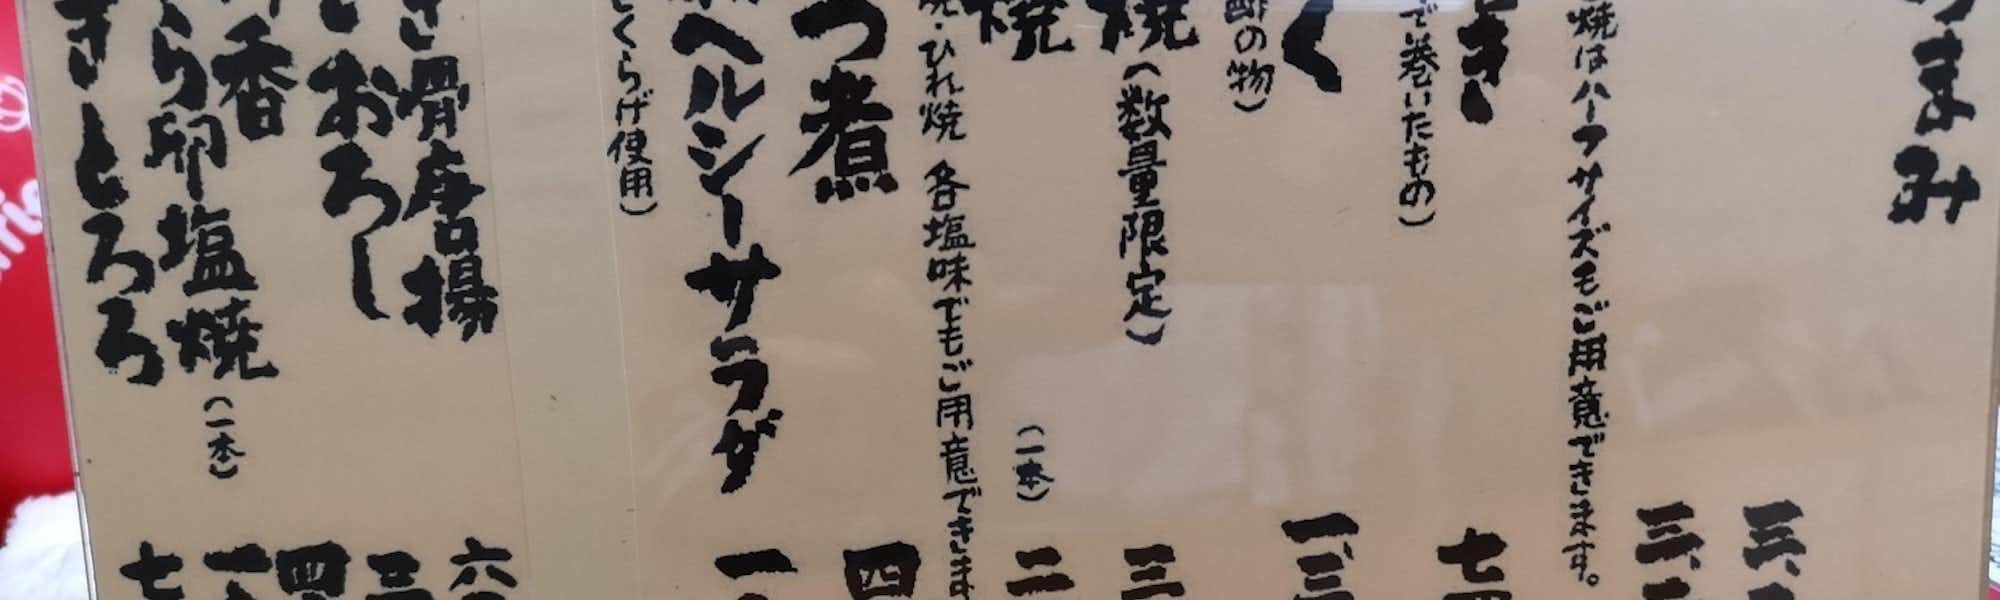 つまみ
三、
三、
焼はハーフサイズもご用意できます。
き
七四
で巻いたもの）
く
一、三
酢の物）
焼（数量限定）
三
焼
（一本）
二
焼・ひれ焼 各塩味でもご用意できます
つ煮
四
ヘルシーサラダ
一、
くらげ使用）
骨唐揚
六
おろし
三
香
四
ら卵塩焼
（一本）
一、
きとろろ
七